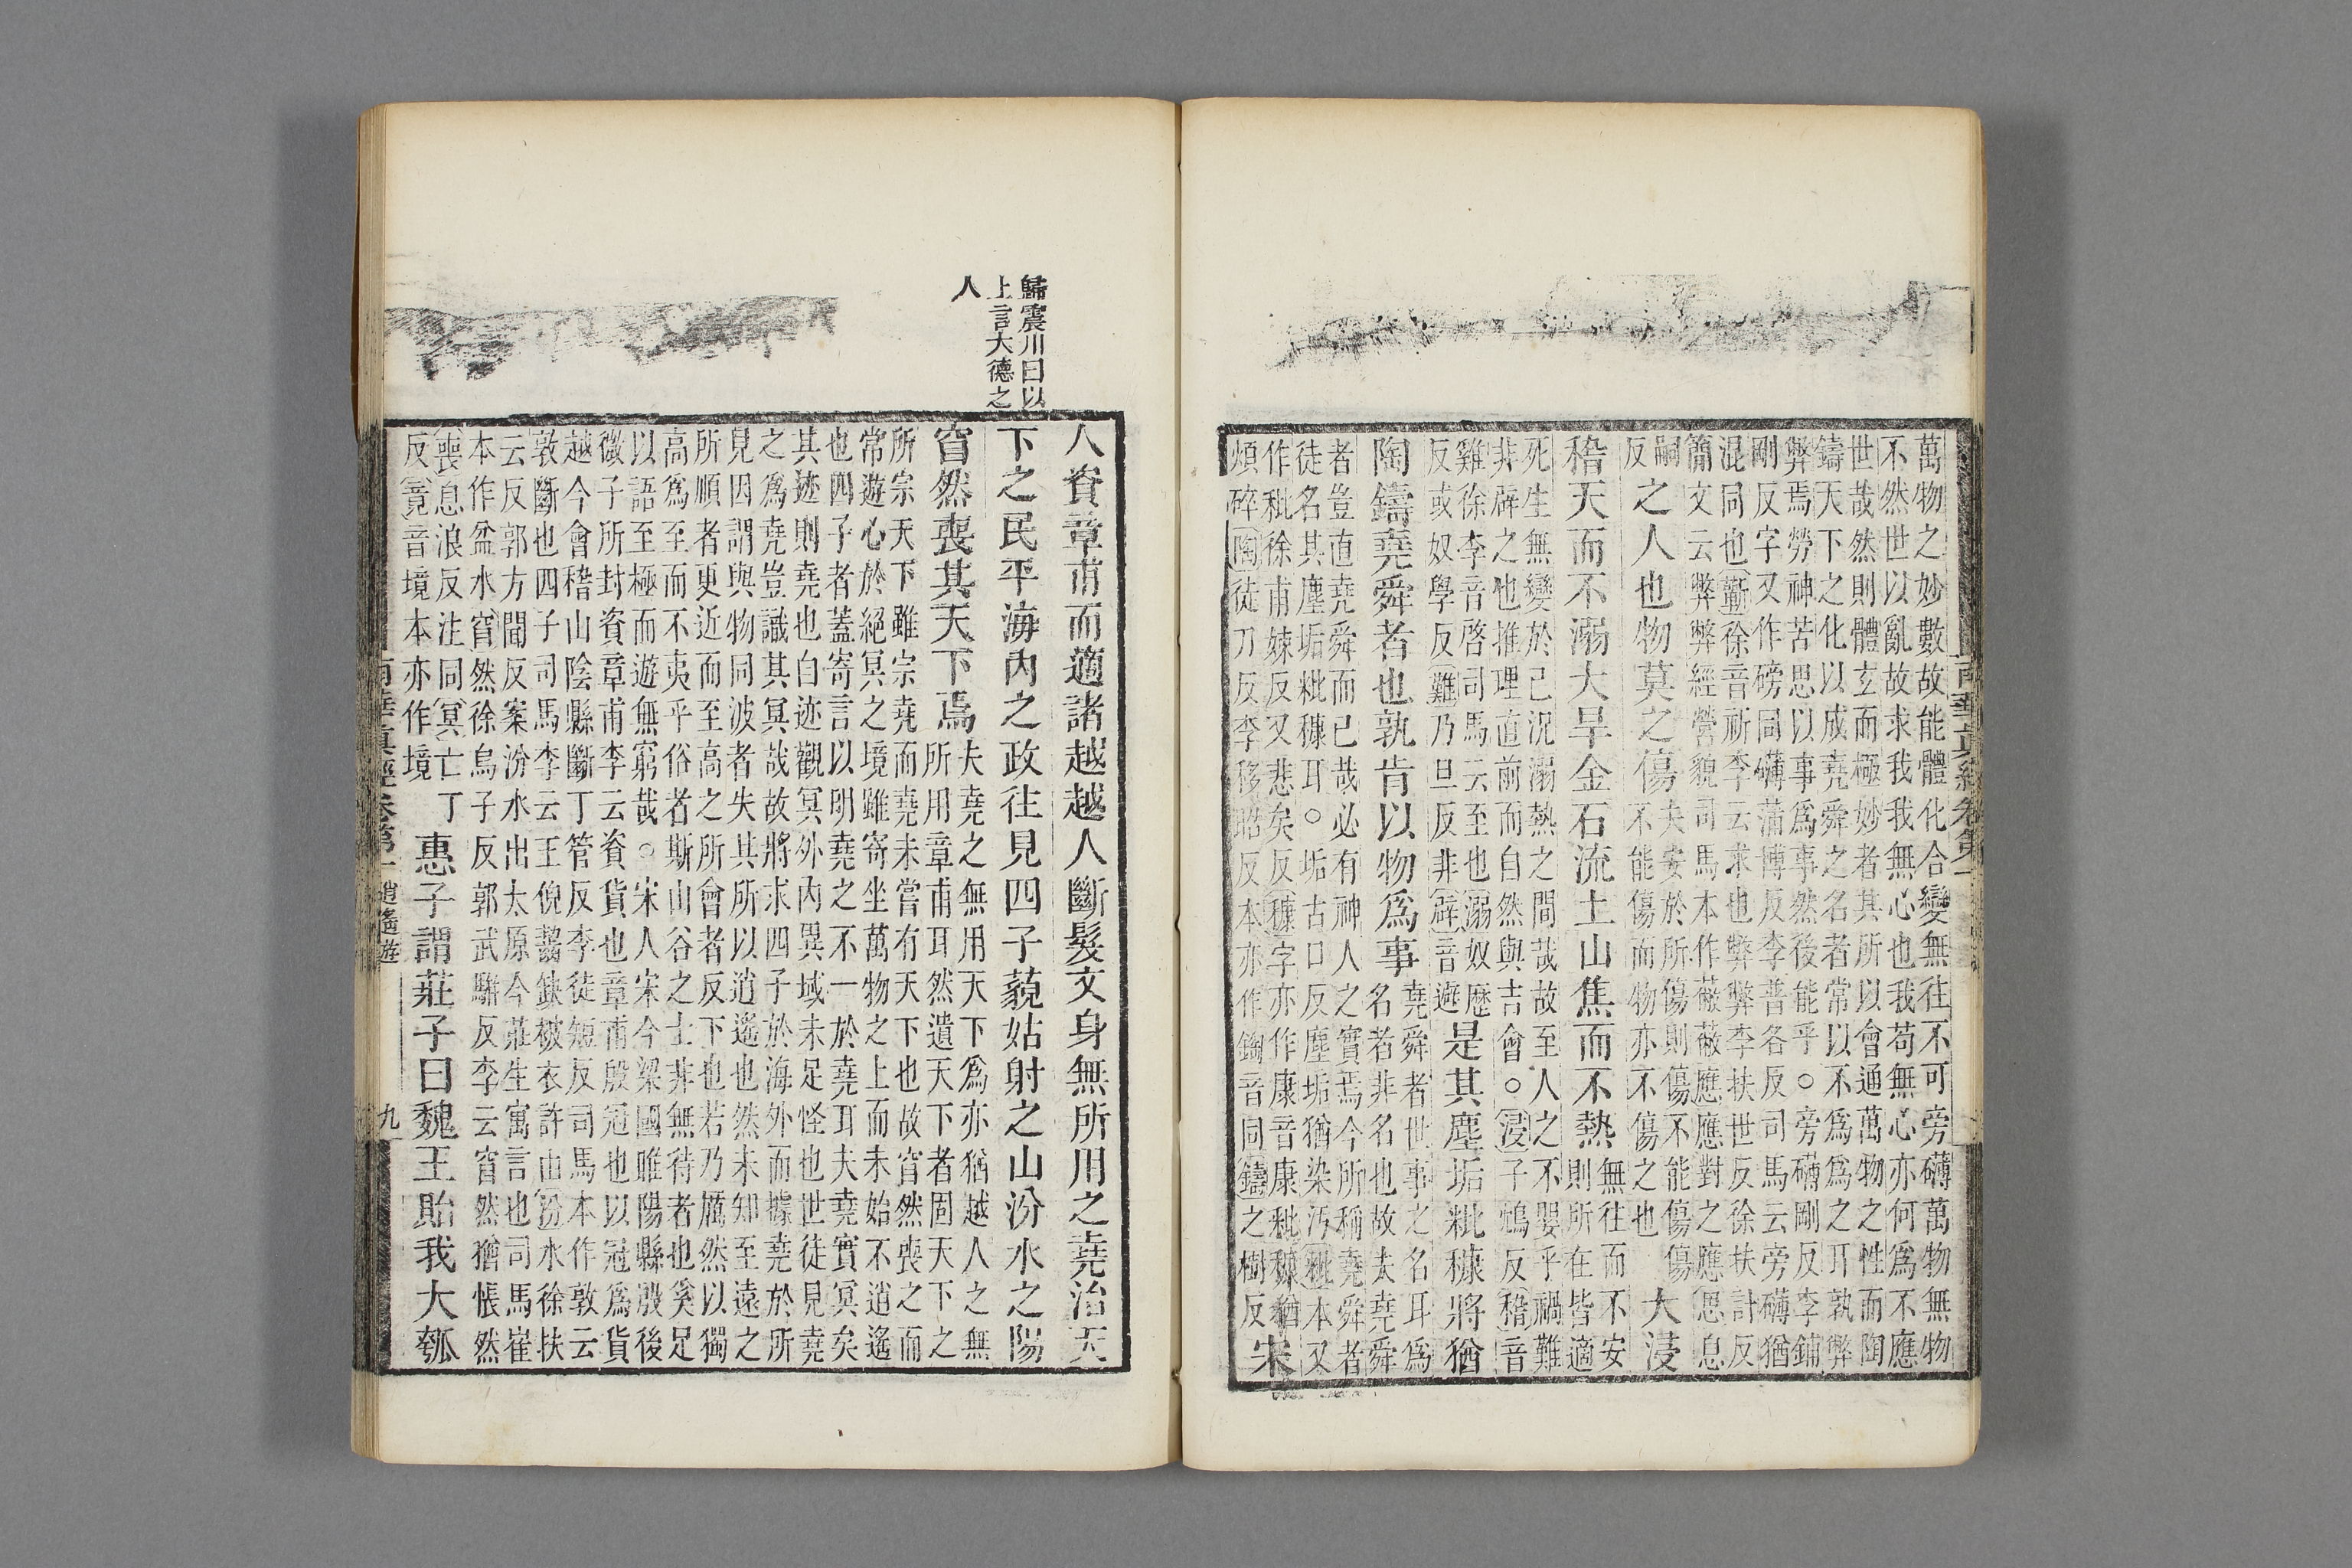 萬物之妙數故能體化合變無往不可旁礴萬物無物
不然世以亂故求我我無心也我苟無心亦何爲不應
世哉然則體玄而極妙者其所以會通萬物之性而陶
鑄天下之化以成堯舜之名者常以不爲爲之耳孰弊
弊焉勞神苦思以事爲事然後能乎○旁礴剛反李鋪
剛反字又作磅同礴蒲博反李普各反司馬云旁礴猶
混同也蘄徐音祈李云求也弊弊李扶世反徐扶計反
簡文云弊弊經營貌司馬本作蔽蔽應應對之應思息
嗣
反
之人也物莫之傷
夫安於所傷則傷不能傷傷
不能傷而物亦不傷之也
大浸
稽天而不溺大旱金石流土山焦而不熱
無往而不安
則所在皆適
死生無變於已況溺熱之間哉故至人之不嬰乎禍難
非辟之也推理直前而自然與吉會○浸子鴆反稽音
雞徐李音啓司馬云至也溺奴歷
反或奴學反難乃旦反非辟音避
是其塵垢粃糠將猶
陶鑄堯舜者也孰肯以物爲事
堯舜者世事之名耳爲
名者非名也故夫堯舜
者豈直堯舜而已哉必有神人之實焉今所稱堯舜者
徒名其塵垢粃穅耳○垢古口反塵垢猶染汚粃本又
作秕徐甫姊反又悲矣反穅字亦作康音康秕穅猶
煩碎陶徒刀反李移昭反本亦作鋾音同鑄之樹反
宋
人資章甫而適諸越越人斷髮文身無所用之堯治天
下之民平海內之政往見四子藐姑射之山汾水之陽
窅然喪其天下焉
夫堯之無用天下爲亦猶越人之無
所用章甫耳然遺天下者固天下之
所宗天下雖宗堯而堯未嘗有天下也故窅然喪之而
常遊心於絕冥之境雖寄坐萬物之上而未始不逍遙
也四子者蓋寄言以明堯之不一於堯耳夫堯實冥矣
其迹則堯也自迹觀冥外內異域未足怪也世徒見堯
之爲堯豈識其冥哉故將求四子於海外而據堯於所
見因謂與物同波者失其所以逍遙也然未知至遠之
所順者更近而至高之所會者反下也若乃厲然以獨
高爲至而不夷乎俗者斯山谷之士非無待者也奚足
以語至極而遊無窮哉○宋人宋今梁國睢陽縣殷後
微子所封資章甫李云資貨也章甫殷冠也以冠爲貨
越今會稽山陰縣斷丁管反李徒短反司馬本作敦云
敦斷也四子司馬李云王倪齧缺被衣許由汾水徐扶
云反郭方聞反案汾水出太原今莊生寓言也司馬崔
本作盆水窅然徐烏子反郭武騈反李云窅然猶悵然
喪息浪反注同冥亡丁
反竟音境本亦作境
惠子謂莊子曰魏王貽我大瓠
歸震川曰以
上言大德之
人
南華真經卷第一
南華真經卷第一
逍遙遊
九